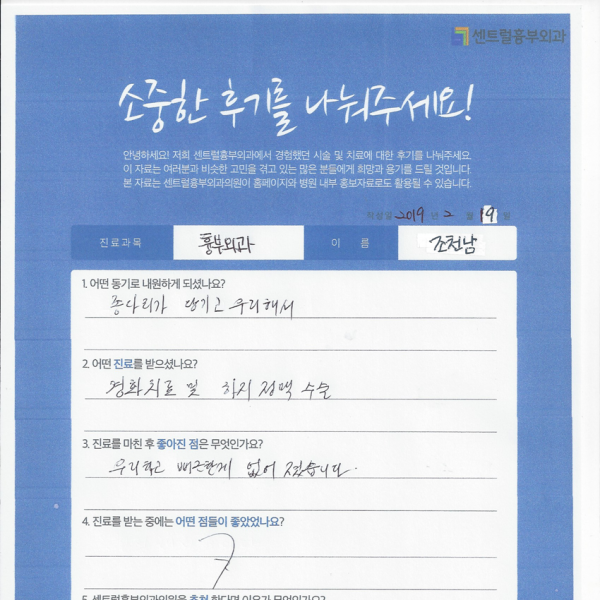 센트럴흉부외과
소중한 후기를 나눠주세요!
안녕하세요! 저희 센트럴흉부외과에서 경험했던 시술 및 치료에 대한 후기를 나눠주세요.
이 자료는 여러분과 비슷한 고민을 겪고 있는 많은 분들에게 희망과 용기를 드릴 것입니다.
본 자료는 센트럴흉부외과의원이 홈페이지와 병원 내부 홍보자료로도 활용될 수 있습니다.
작성일 2019 년 2 월 19 일
진료과목 흉부외과 이 름 조천남
1. 어떤 동기로 내원하게 되셨나요?
종아리가 당기고 우리해서
2. 어떤 진료를 받으셨나요?
경화치료 및 하지정맥 수술
3. 진료를 마친 후 좋아진 점은 무엇인가요?
우리하고 뻐근한게 없어졌습니다.
4. 진료를 받는 중에는 어떤 점들이 좋았었나요?
5. 센트럴흉부외과의원을 추천 한다면 이유가 무엇인가요?